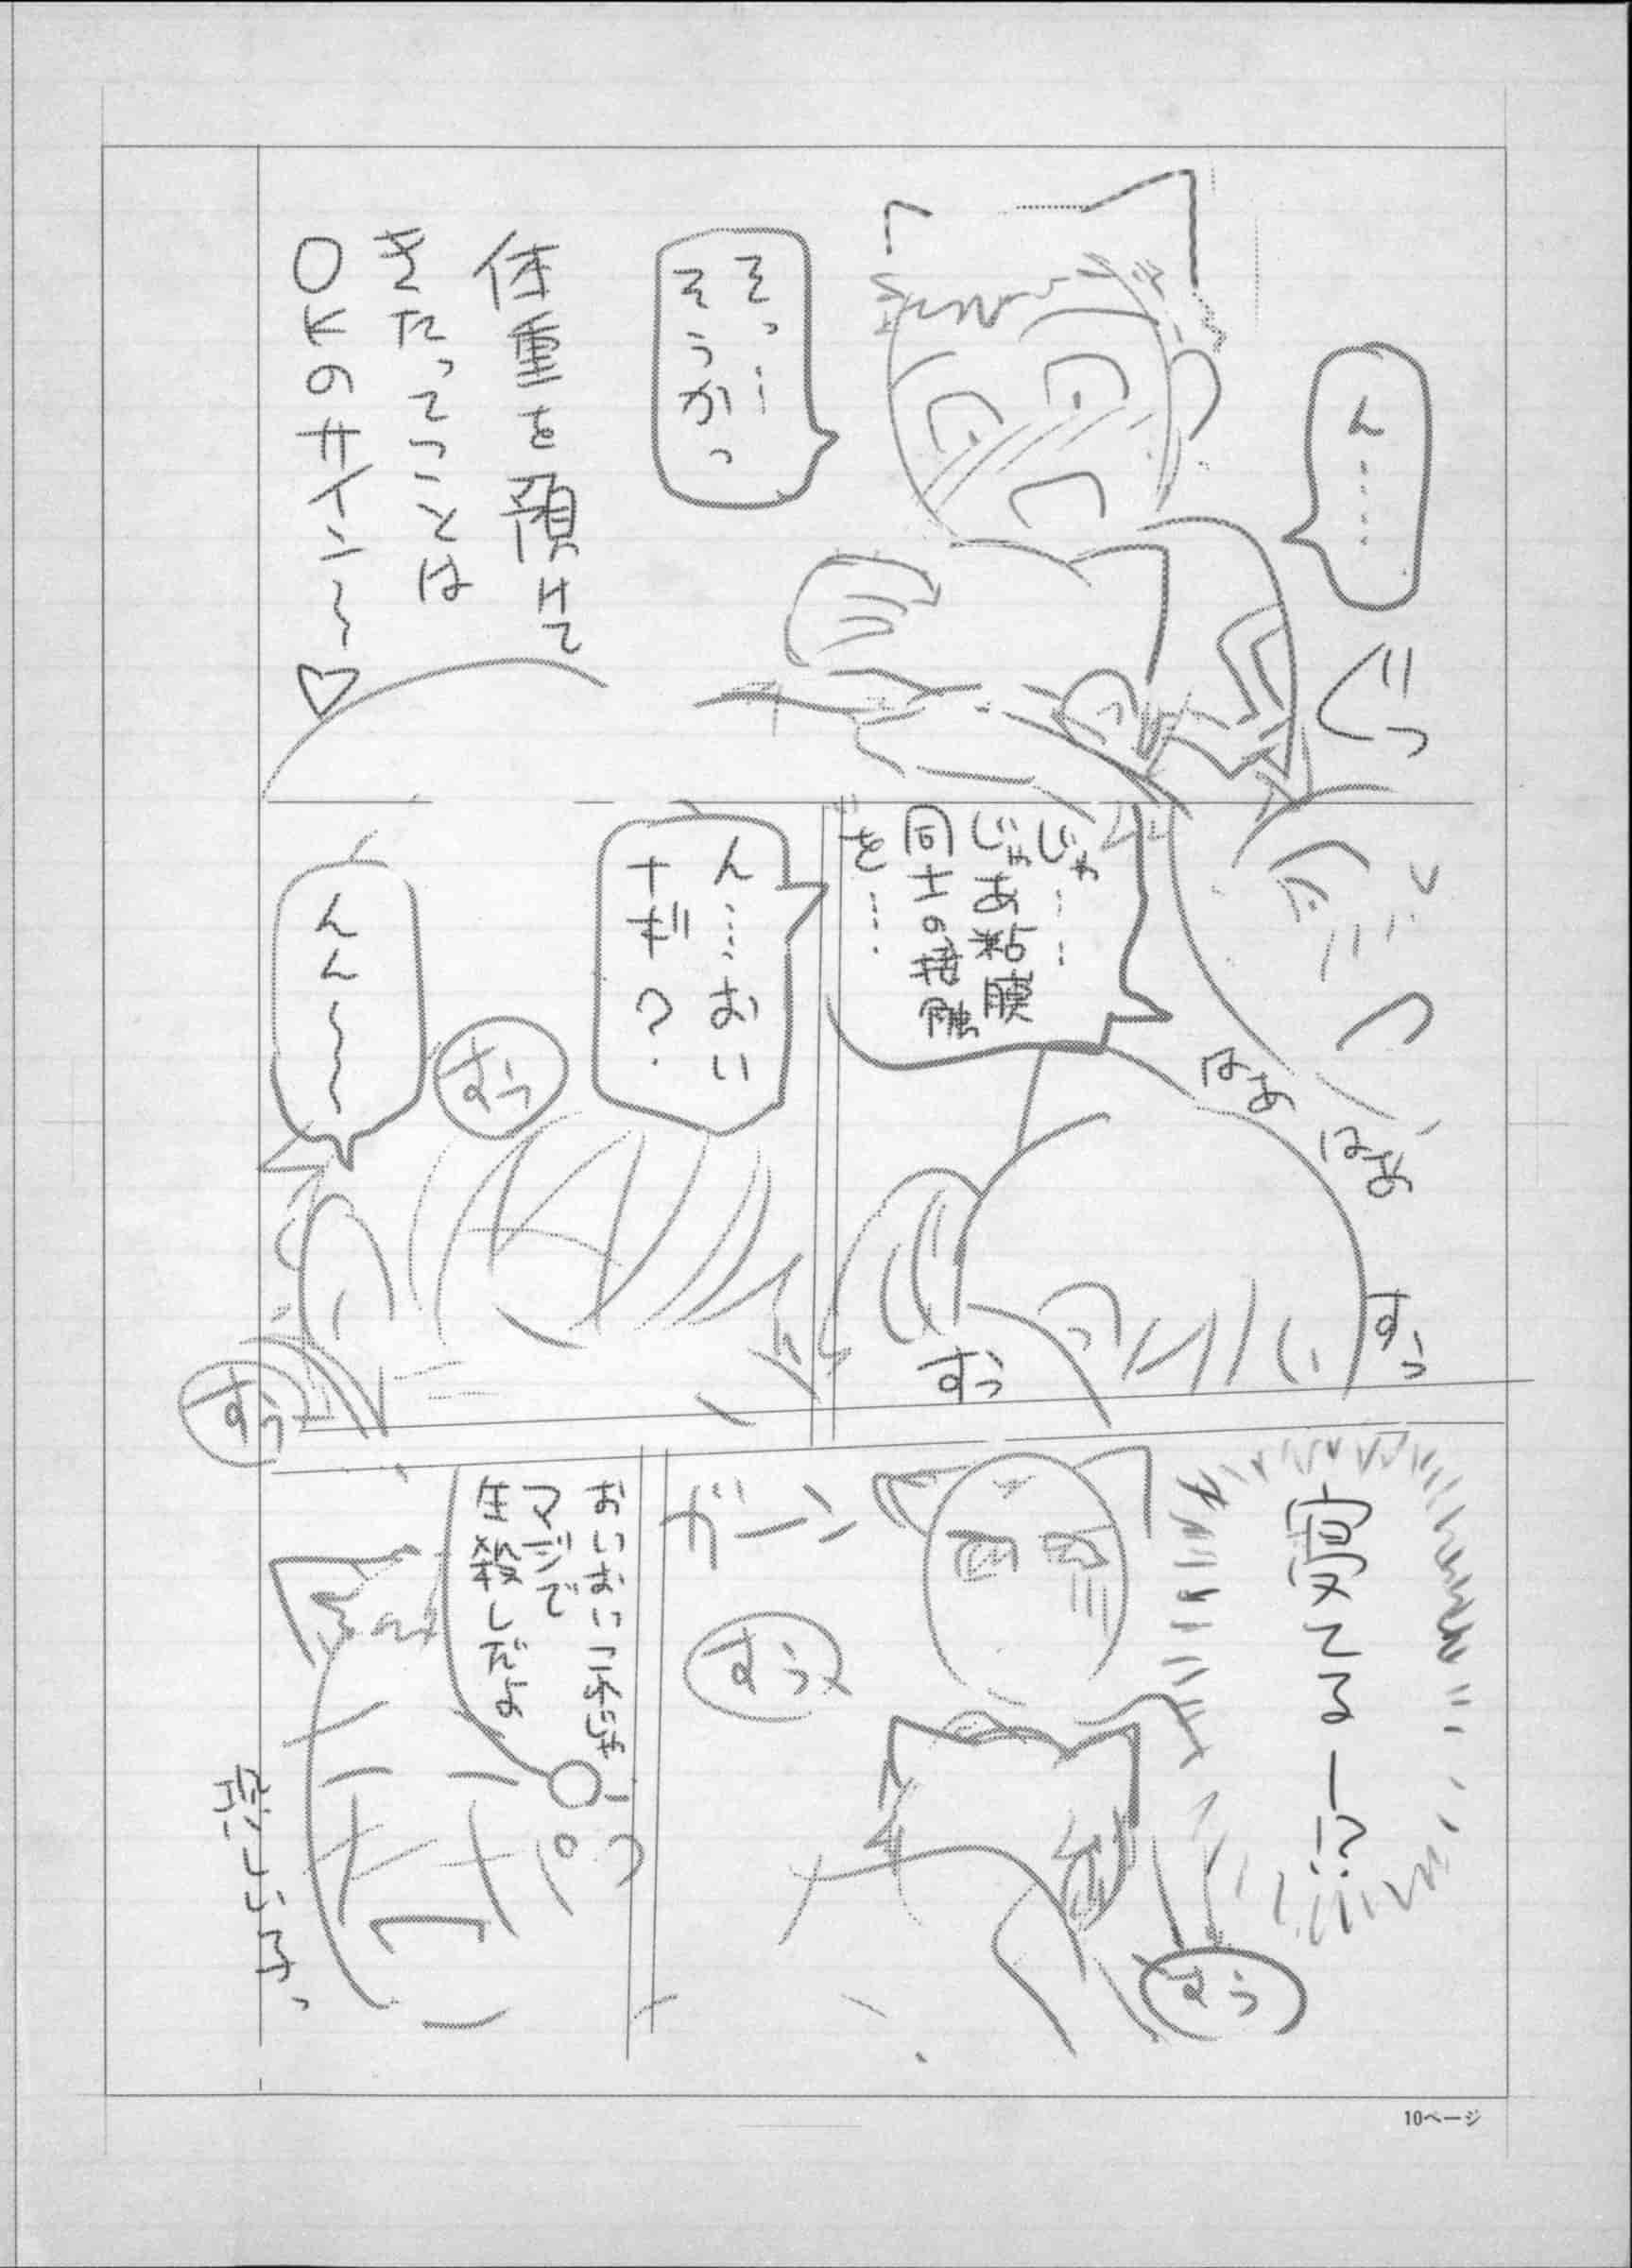 ん……
ぐっ
そっ…
そうかっ
体重を預けて
きたってことは
OKのサイン～♡
じゃ……
じゃあ粘膜
同士の接触
を……
はあ
はあ
すぅ
すぅ
ん…おい
ナギ？
すぅ
んん～～
すぅ
寝てるー!?
ガーン
すぅ
すぅ
おいおいこれじゃ
マジで
生殺しだよ